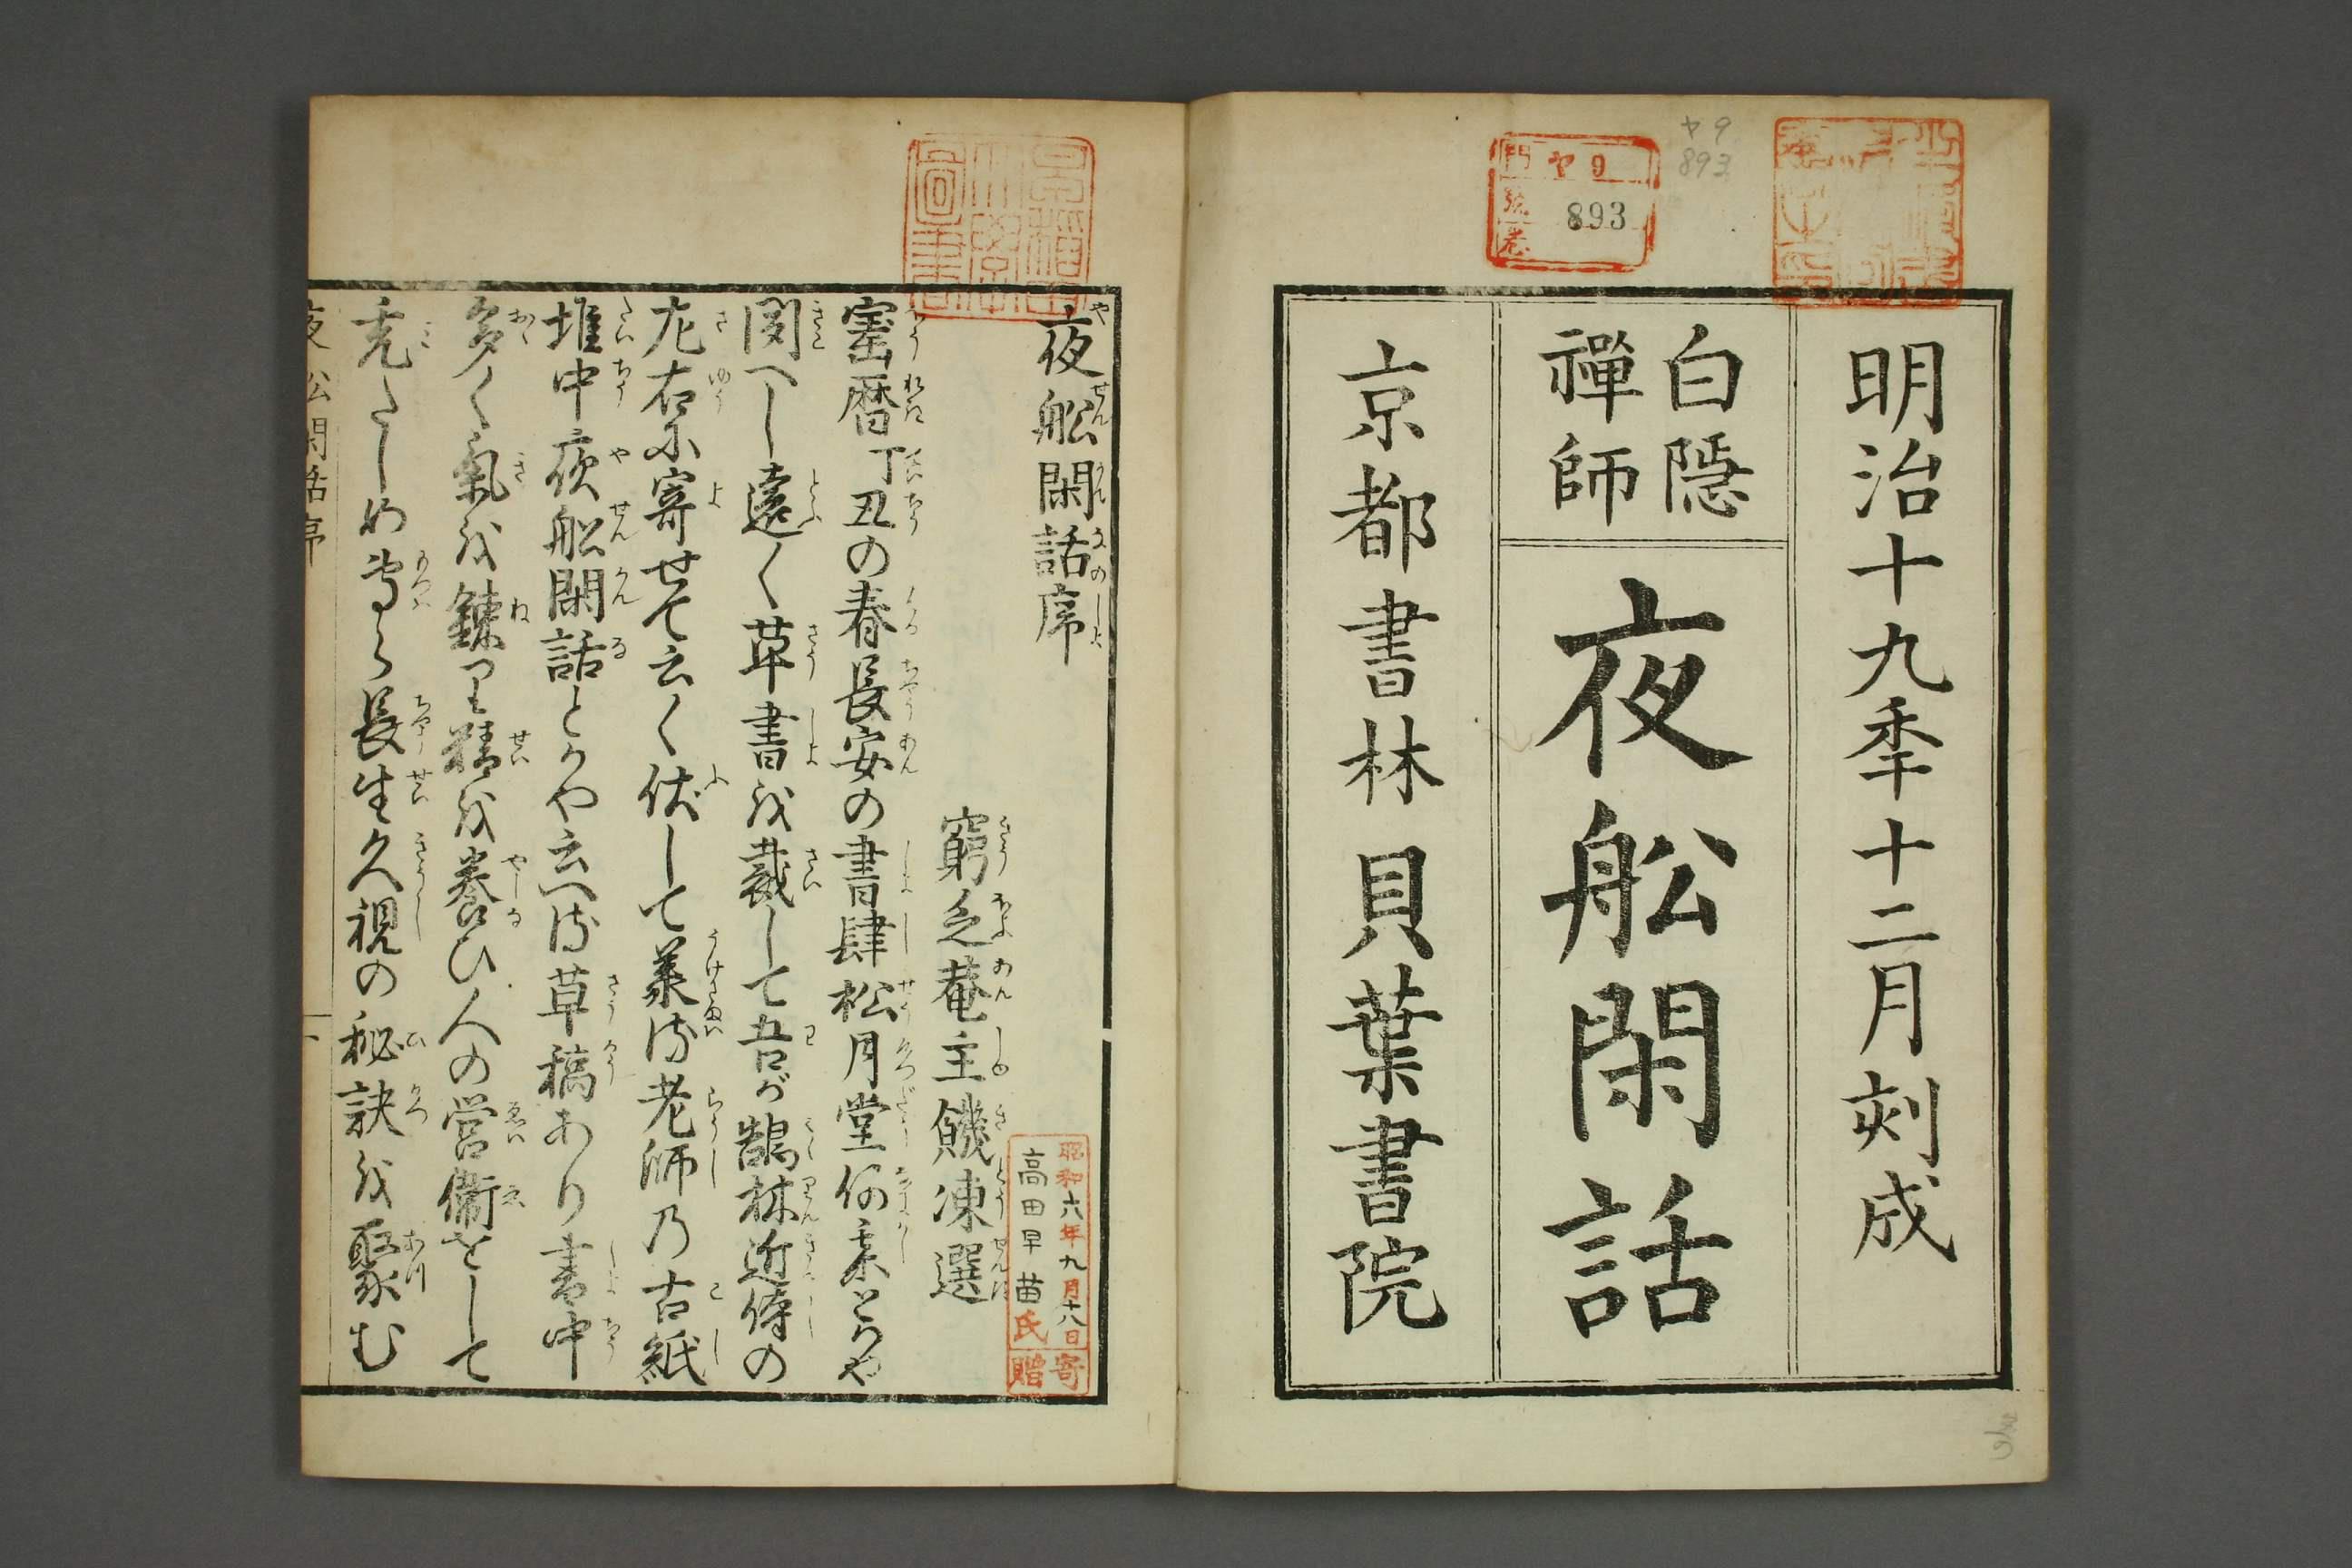 明治十九季十二月刻成
白隱
禪師
夜舩閑話
京都書林貝葉書院
ヤ9
893
門
號
卷
ヤ9
893
夜舩閑話序
窮乏菴主饑凍選
寳暦丁丑の春長安の書肆松月堂何某とかや
聞へし遠く草書を裁して吾が鵠林近侍の
左右に寄せて云く伏して承る老師乃古紙
堆中夜舩閑話とかや云へる草稿あり書中
多く氣を錬り精を養ひ人の営衞をして
充たしめ専ら長生久視の秘訣を聚む
昭和六年九月十八日寄
高田早苗氏贈
夜舩閑話序